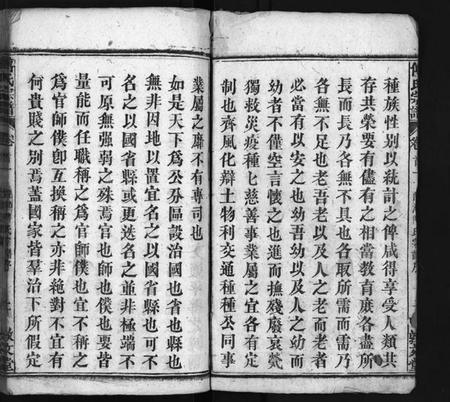 種族性別以統計之俾咸得享受人類共
存共榮要有儘有之相當教育庶各盡所
長而長乃各無不具也各取所需而需乃
各無不足也老吾老以及人之老而老者
必當有以安之也幼吾幼以及人之幼而
幼者不僅空言懷之也進而撫殘廢哀煢
獨救災疫種種慈善事業屬之宜各有定
制也齊風化辯土物利交通種種公同事
業屬之肅不有專司也
如是天下為公分區設治國也省也縣也
無非因地以置宜名之以國省縣也可不
名之以國省縣或更迭名之並非極端不
可原無強弱之殊焉官也師也僕也要皆
量能而任職稱之為官師僕也宜不稱之
為官師僕卽互換稱之亦非絕對不宜有
何貴賤之別焉蓋國家皆羣治下所假定